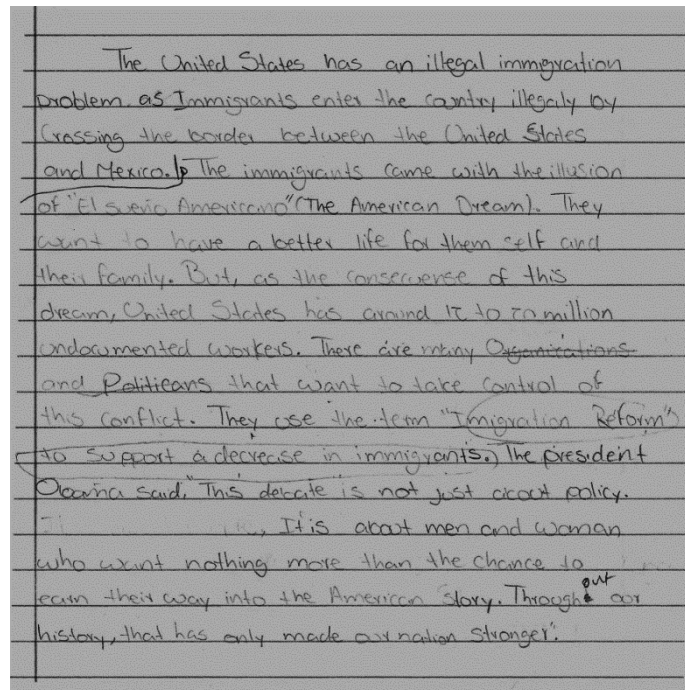 The United States has an illegal immigration
problem as Immigrants enter the country illegaly by
Crossing the border between the United States
and Mexico. The immigrants came with the illusion
of "El sueño Americano" (The American Dream). They
want to have a better life for them self and
their family. But, as the consecuense of this
dream, United States has around 12 to 20 million
undocumented workers. There are many Organizations
and Politicans that want to take control of
this conflict. They use the term "Imigration Reform"
to support a decrease in immigrants. The president
Obama said, "This debate is not just about policy.
It is about men and woman
who want nothing more than the chance to
earn their way into the American story. Throughout our
history, that has only made our nation stronger".